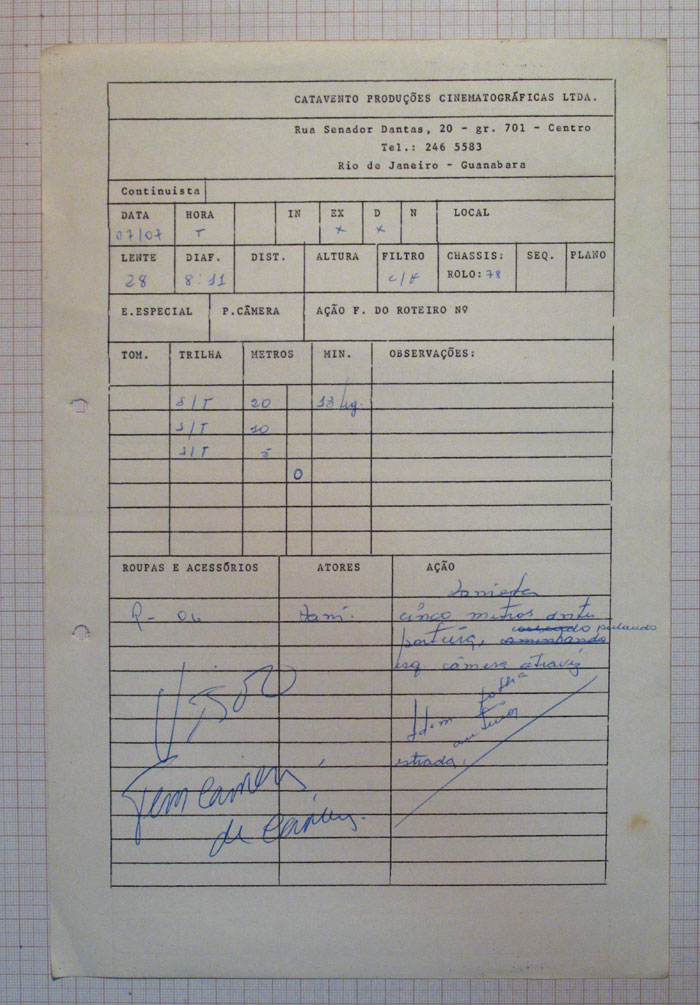 CATAVENTO PRODUÇÕES CINEMATOGRÁFICAS LTDA.
Rua Senador Dantas, 20 - gr. 701 - Centro
Tel.: 246 5583
Rio de Janeiro - Guanabara
Continuista
DATA HORA IN EX D N LOCAL
07/07 T x x
LENTE DIAF. DIST. ALTURA FILTRO CHASSIS: SEQ. PLANO
28 8:11 c/F ROLO: 78
E.ESPECIAL P.CÂMERA AÇÃO F. DO ROTEIRO Nº
TOM. TRILHA METROS MIN. OBSERVAÇÕES:
20
1/T 10
1/T
0
ROUPAS E ACESSÓRIOS ATORES AÇÃO
R- 04 Dani. cinco metros ante
porteira, caminhando pulando
esq. câmera através
Idem folha
anterior
estrada.
Tem
de